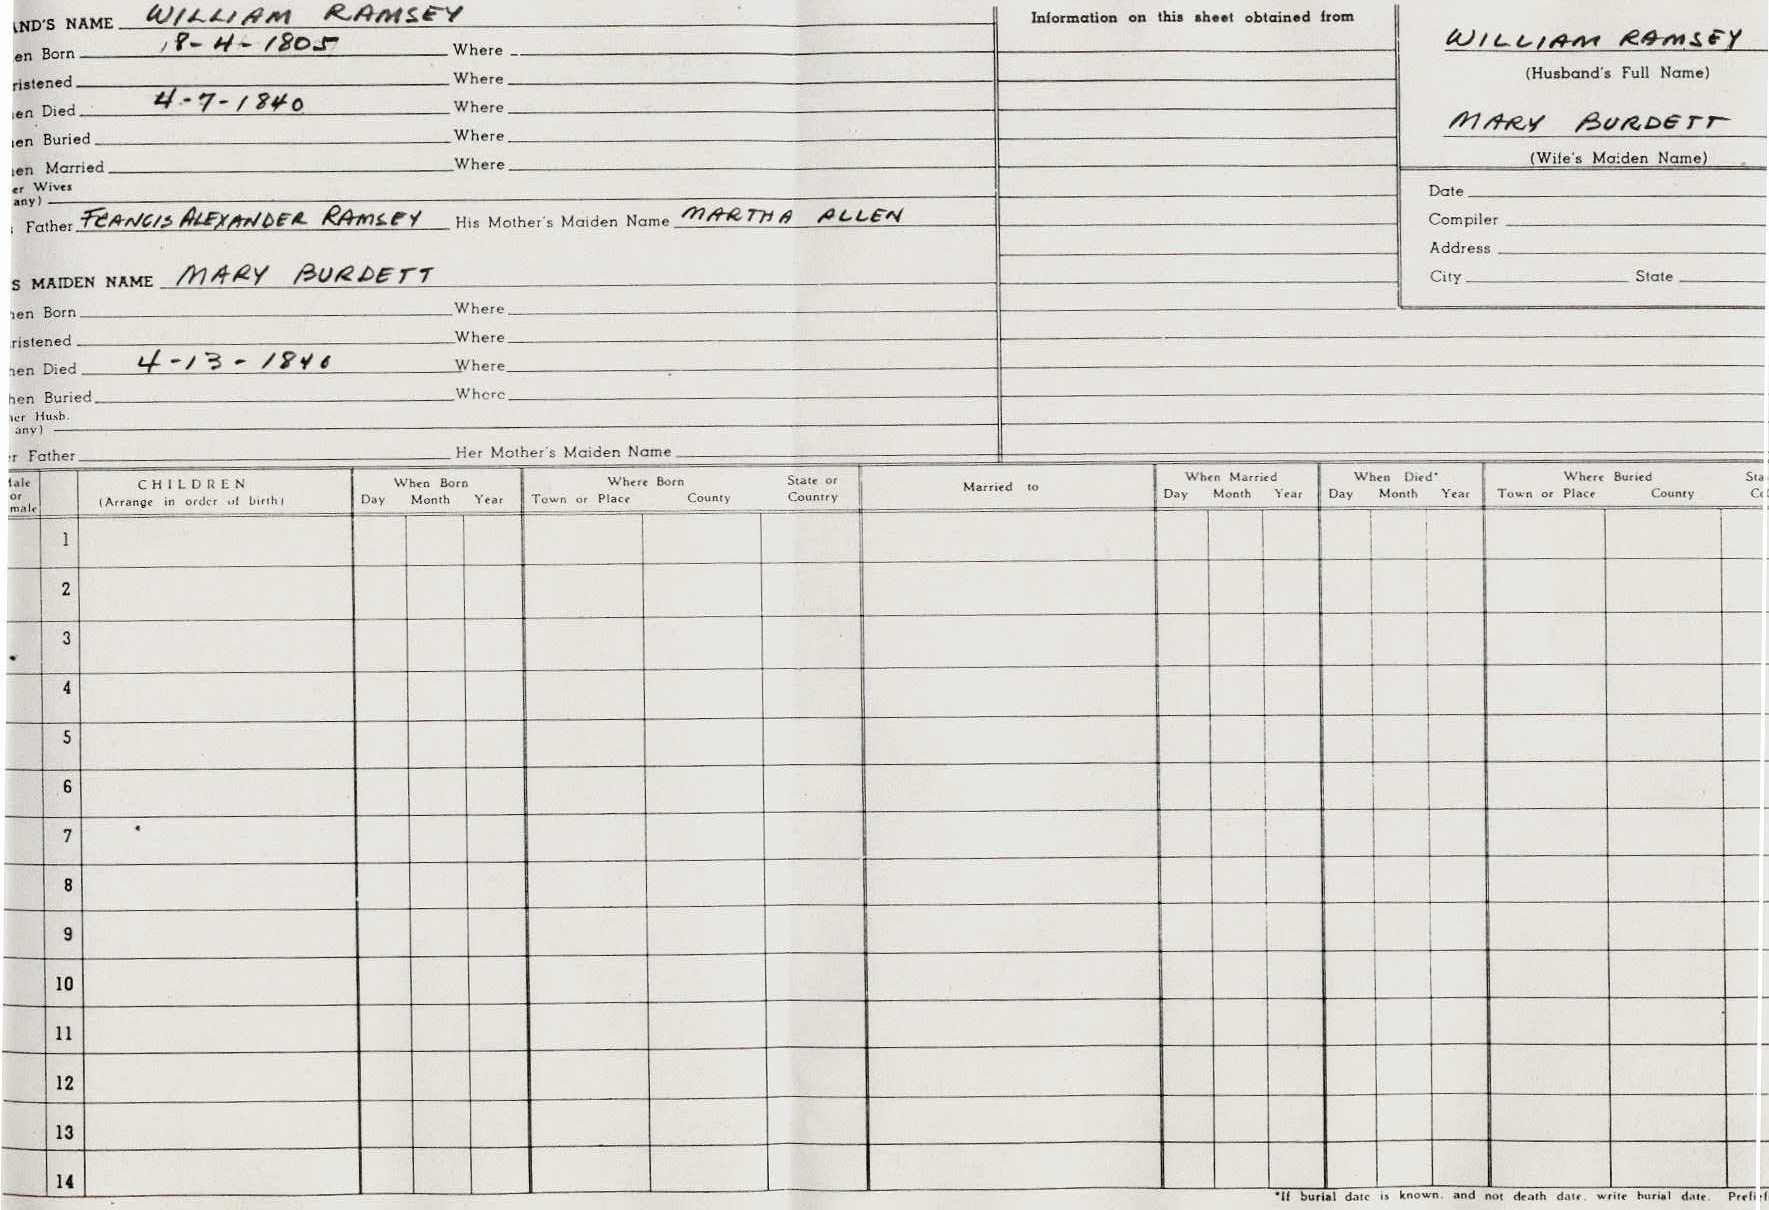 AND'S NAME WILLIAM RAMSEY
en Born 18-4-1805 Where
ristened Where
en Died 4-7-1840 Where
en Buried Where
en Married Where
er Wives
any)
Father FRANCIS ALEXANDER RAMSEY His Mother's Maiden Name MARTHA ALLEN
S MAIDEN NAME MARY BURDETT
hen Born Where
ristened Where
hen Died 4-13-1840 Where
hen Buried Where
her Husb.
any)
r Father Her Mother's Maiden Name
Information on this sheet obtained from
WILLIAM RAMSEY
(Husband's Full Name)
MARY BURDETT
(Wife's Maiden Name)
Date
Compiler
Address
City State
ale or male CHILDREN When Born Where Born State or Country Married to When Married When Died* Where Buried Sta
(Arrange in order of birth) Day Month Year Town or Place County Day Month Year Day Month Year Town or Place County Co
1
2
3
4
5
6
7
8
9
10
11
12
13
14
*If burial date is known, and not death date, write burial date. Prefi